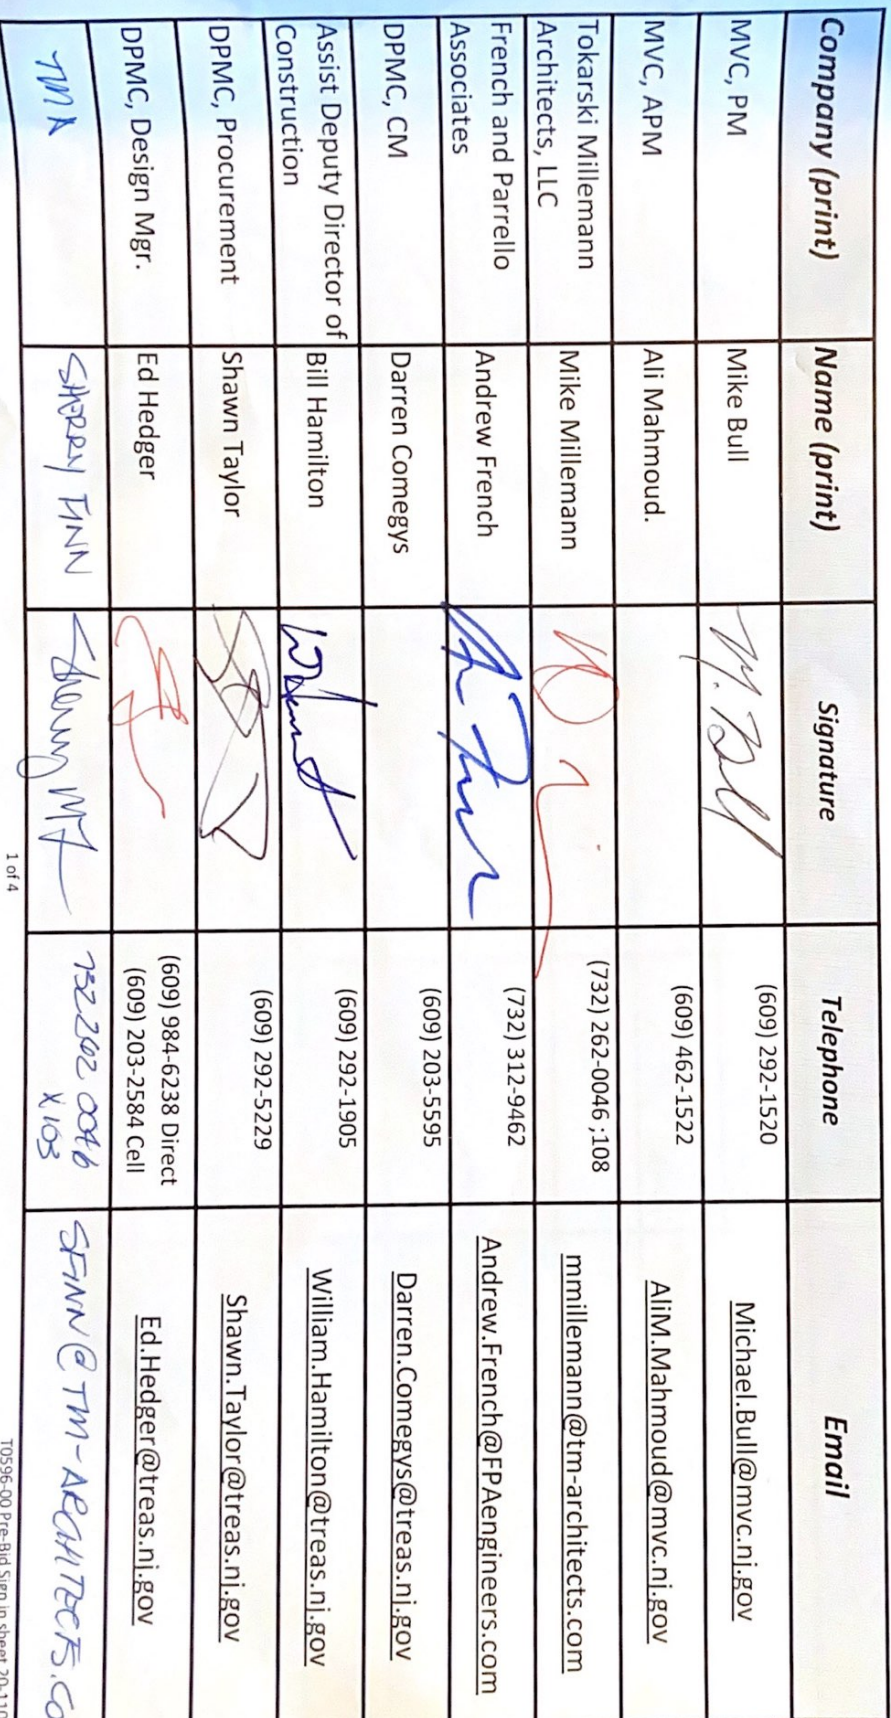 Company (print) Name (print) Signature Telephone Email
MVC, PM Mike Bull M. Bull (609) 292-1520 Michael.Bull@mvc.nj.gov
MVC, APM Ali Mahmoud. (609) 462-1522 AliM.Mahmoud@mvc.nj.gov
Tokarski Millemann
Architects, LLC Mike Millemann (732) 262-0046 ;108 mmillemann@tm-architects.com
French and Parrello
Associates Andrew French (732) 312-9462 Andrew.French@FPAengineers.com
DPMC, CM Darren Comegys (609) 203-5595 Darren.Comegys@treas.nj.gov
Assist Deputy Director of
Construction Bill Hamilton (609) 292-1905 William.Hamilton@treas.nj.gov
DPMC, Procurement Shawn Taylor (609) 292-5229 Shawn.Taylor@treas.nj.gov
DPMC, Design Mgr. Ed Hedger (609) 984-6238 Direct Ed.Hedger@treas.nj.gov
(609) 203-2584 Cell
TMA SHERRY FINN 732 262 0046 SFINN@TM-ARCHITECTS.CO
X 103
1 of 4
T0596-00 Pre-Bid Sign in sheet 20-110